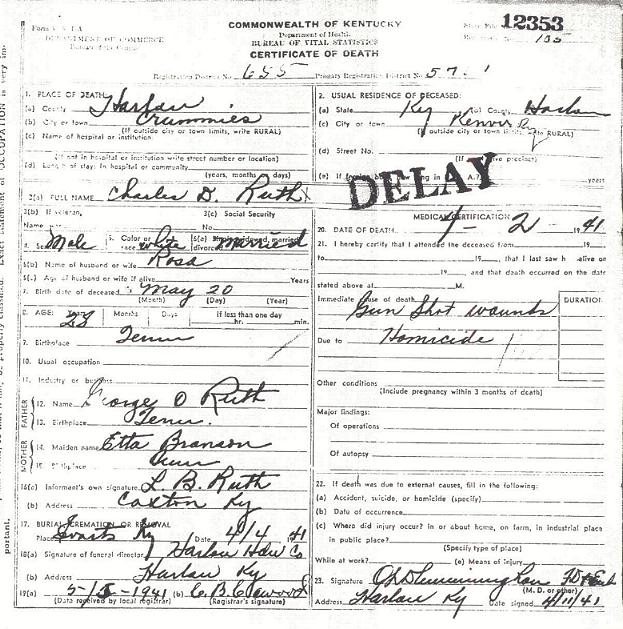 COMMONWEALTH OF KENTUCKY
Department of Health
BUREAU OF VITAL STATISTICS
CERTIFICATE OF DEATH
DEPARTMENT OF COMMERCE
State File 12353
Registration District No. 655 Primary Registration District No. 57
1. PLACE OF DEATH
(a) County Harlan
(b) City or town Crummies
(If outside city or town limits, write RURAL)
(c) Name of hospital or institution
(If not in hospital or institution write street number or location)
(d) Length of stay: In hospital or community
(years, months or days)
2. USUAL RESIDENCE OF DECEASED:
(a) State Ky (b) County Harlan
(c) City or town Kenvir Ky
(If outside city or town limits, write RURAL)
(d) Street No.
DELAY
years
3(a) FULL NAME Charles D. Ruth
3(b) If veteran, 3(c) Social Security
Name war No.
4. Sex Male 5. Color or race white 6(a) Single, widowed, married, divorced married
6(b) Name of husband or wife Rosa
6(c) Age of husband or wife if alive Years
7. Birth date of deceased May 20
(Month) (Day) (Year)
8. AGE: Years Months Days If less than one day
23 hr. min.
9. Birthplace Tenn
10. Usual occupation
11. Industry or business
FATHER
12. Name George O Ruth
13. Birthplace Tenn.
MOTHER
14. Maiden name Etta Branson
15. Birthplace Tenn
16(a) Informant's own signature L. B. Ruth
(b) Address Coxton Ky
17. BURIAL, CREMATION OR REMOVAL
Place Evarts Ky Date 4/4 41
18(a) Signature of funeral director Harlan Hdw Co
(b) Address Harlan Ky
19(a) 1941 (b)
(Date received by local registrar) (Registrar's signature)
MEDICAL CERTIFICATION
20. DATE OF DEATH 4 - 2 - 1941
21. I hereby certify that I attended the deceased from 19
to 19, that I last saw h alive on
19, and that death occurred on the date
stated above at M.
Immediate cause of death DURATION
Gun Shot wounds
Due to Homicide
Other conditions
(Include pregnancy within 3 months of death)
Major findings:
Of operations
Of autopsy
22. If death was due to external causes, fill in the following:
(a) Accident, suicide, or homicide (specify)
(b) Date of occurrence
(c) Where did injury occur? in or about home, on farm, in industrial place
in public place?
(Specify type of place)
While at work? (e) Means of injury
23. Signature
(M. D. or other)
Address Harlan Ky Date signed 4/11/41